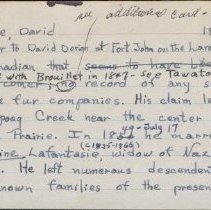 see additional card -
e, David 18
r to David Dorion at Fort John on the Laram
nadian that seems to have been
e with Brouillet in 1847 - see Tawato
comer; (no) record of any s
e fur companies. His claim l
Creek near the center
Prairie. In 18 49 - July 17 he marr
(c1825-1860)
ine Lafantasie, widow of Naz
. He left numerous descendent
nown families of the presen